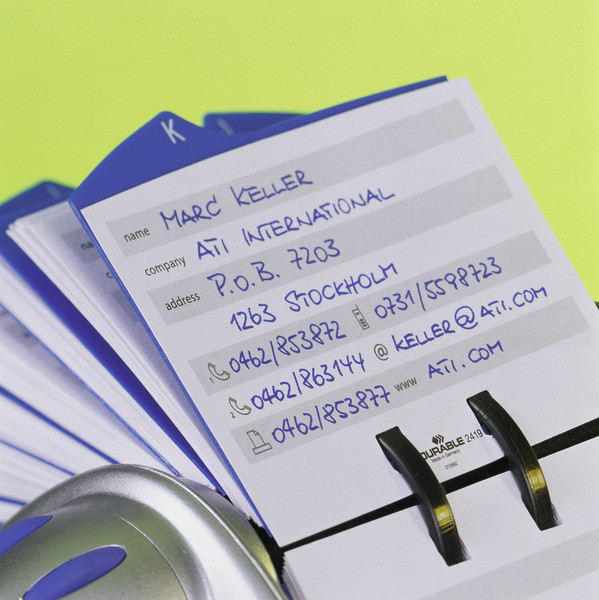 K
name MARC KELLER
company ATI INTERNATIONAL
address P.O.B. 7203
1263 STOCKHOLM
1 0462/853872 0731/5598723
2 0462/863144 @ KELLER@ATI.COM
0462/853877 www ATI.COM
DURABLE 2419
Made in Germany
na